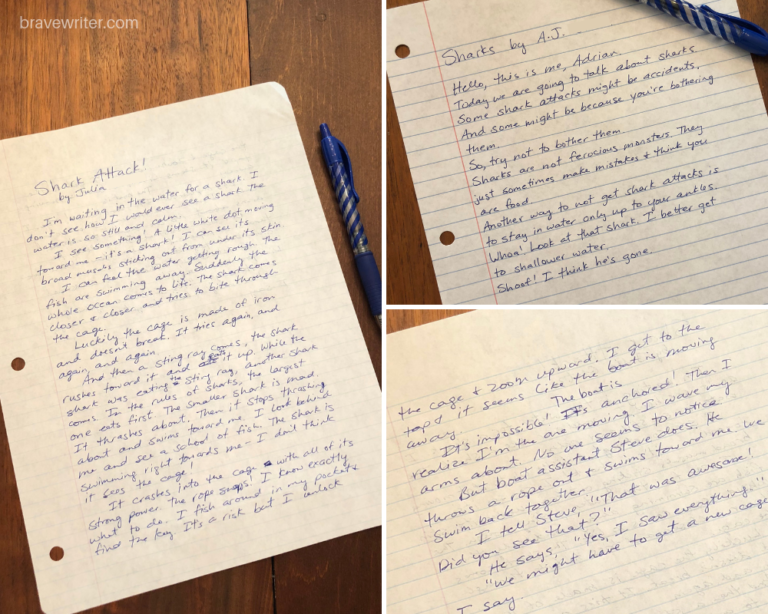 bravewriter.com
Shark Attack!
by Julia
I'm waiting in the water for a shark I
don't see how I would ever see a shark the
water is so still and calm.
I see something! A little white dot moving
toward me - it's a shark! I can see its
broad muscles sticking out from under its skin
I can feel the water getting rough. The
fish are swimming away. Suddenly the
whole ocean comes to life. The shark comes
closer & closer and tries to bite through
the cage.
Luckily the cage is made of iron
and doesn't break. It tries again, and
again, and again.
And then a sting ray comes, the shark
rushes toward it and it up. While the
shark was eating the sting ray, another shark
comes. In the rules of sharks, the largest
one eats first. The smaller shark is mad.
It thrashes about. Then it stops thrashing
about and swims toward me. I look behind
me and see a school of fish. The shark is
swimming right towards me - I don't think
it sees the cage!
It crashes into the cage with all of its
strong power. The rope snaps! I know exactly
what to do. I fish around in my pockets
find the key. It's a risk but I unlock
Sharks by A.J.
Hello, this is me, Adrian.
Today we are going to talk about sharks
Some shark attacks might be accidents,
And some might be because you're bothering
them.
So, try not to bother them
Sharks are not ferocious monsters. They
just sometimes make mistakes & think you
are food.
Another way to not get shark attacks is
to stay in water only up to your ankles.
Whoa! Look at that shark. I better get
to shallower water.
Shoot! I think he's gone.
the cage & zoom upward. I get to the
top & it seems like the boat is moving
away.
The boat is
It's impossible! anchored! Then I
realize I'm the are moving I wave my
arms about. No one seems to notice
But boat assistant Steve does. He
throws a rope out & swims toward me. We
swim back together.
I tell Steve, "That was awesome!
Did you see that?"
He says, "Yes, I saw everything."
"We might have to get a new cage
I say.